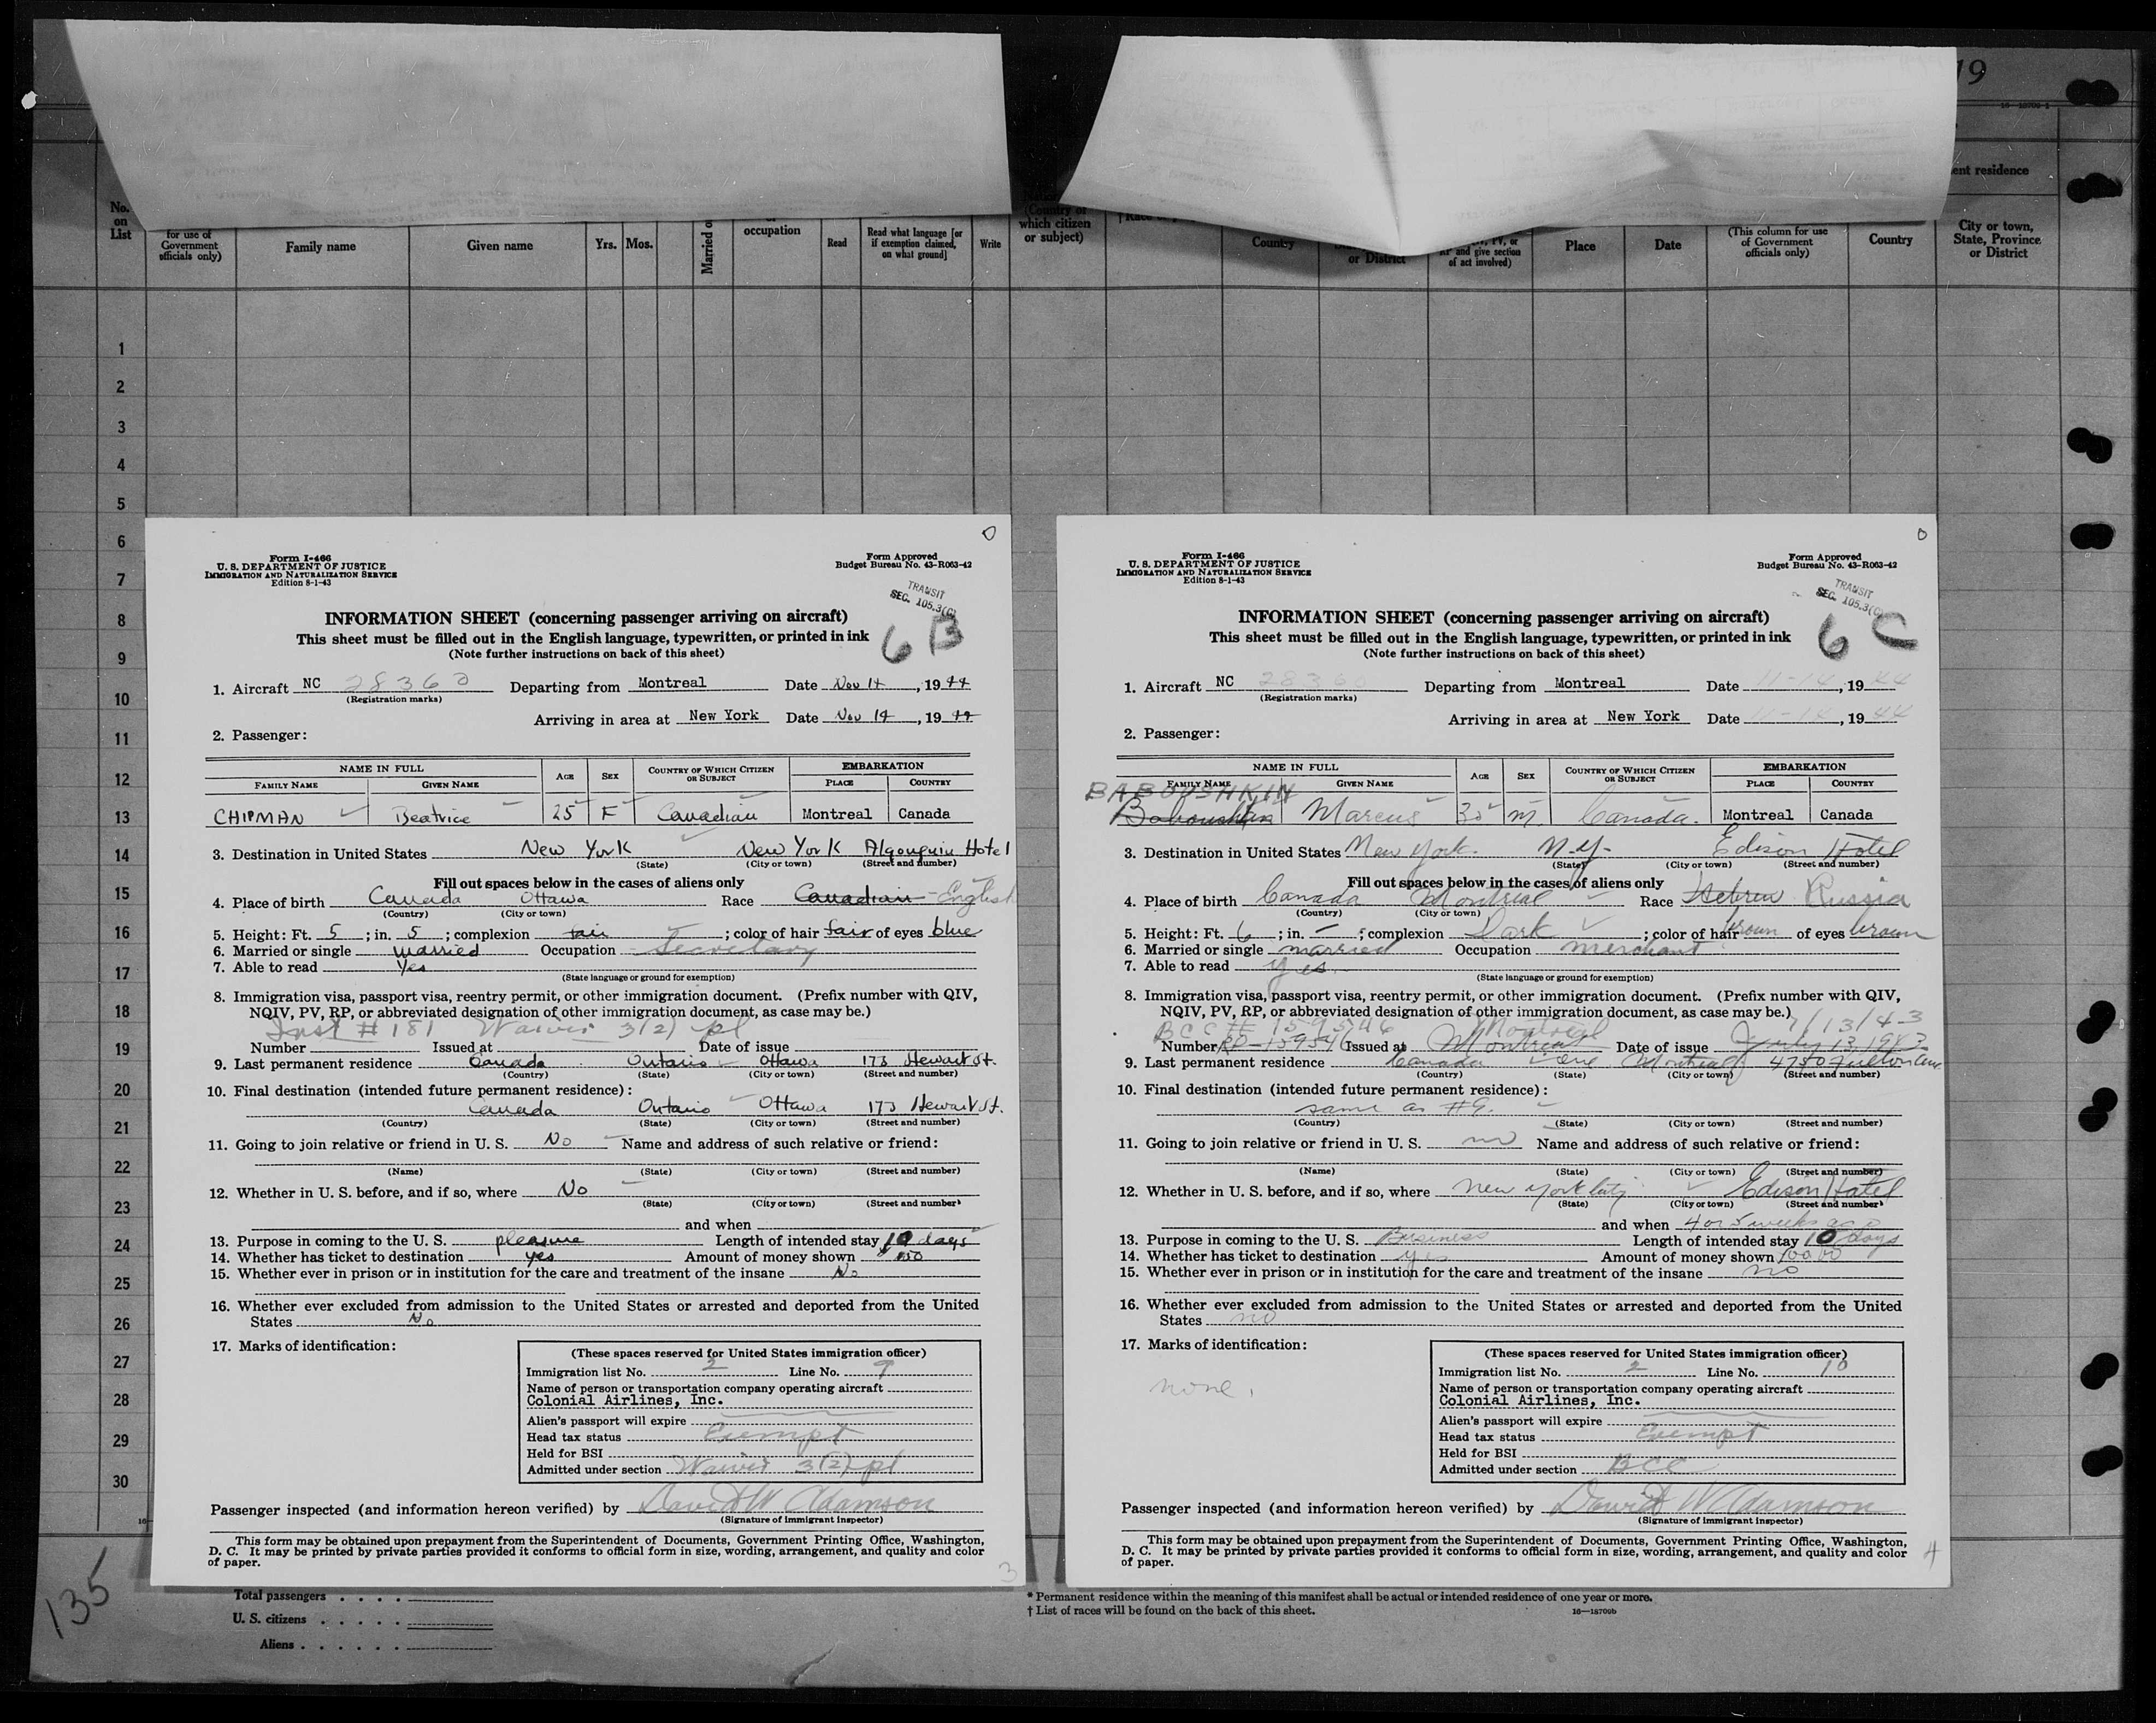 19
16—18709-1
ent residence
No.
on
List
for use of
Government
officials only)
Family name
Given name
Yrs.
Mos.
Married o
occupation
Read
Read what language [or
if exemption claimed,
on what ground]
Write
(Country of
which citizen
or subject)
Country
or District
PV, or
RP and give section
of act involved)
Place
Date
(This column for use
of Government
officials only)
Country
City or town,
State, Province
or District
1
2
3
4
5
6
7
8
9
10
11
12
13
14
15
16
17
18
19
20
21
22
23
24
25
26
27
28
29
30
Form I-466
U. S. DEPARTMENT OF JUSTICE
IMMIGRATION AND NATURALIZATION SERVICE
Edition 8-1-43
Form Approved
Budget Bureau No. 43-R063-42
TRANSIT
SEC. 105.3(C)
INFORMATION SHEET (concerning passenger arriving on aircraft)
This sheet must be filled out in the English language, typewritten, or printed in ink
(Note further instructions on back of this sheet)
6 B
1. Aircraft NC 28360 Departing from Montreal Date Nov 14, 1944
(Registration marks)
Arriving in area at New York Date Nov 14, 1944
2. Passenger:
NAME IN FULL
FAMILY NAME GIVEN NAME
AGE SEX
COUNTRY OF WHICH CITIZEN
OR SUBJECT
EMBARKATION
PLACE COUNTRY
CHIPMAN Beatrice 25 F Canadian Montreal Canada
3. Destination in United States New York New York Algonquin Hotel
(State) (City or town) (Street and number)
Fill out spaces below in the cases of aliens only
4. Place of birth Canada Ottawa Race Canadian - English
(Country) (City or town)
5. Height: Ft. 5; in. 5; complexion fair; color of hair fair of eyes blue
6. Married or single married Occupation Secretary
7. Able to read Yes
(State language or ground for exemption)
8. Immigration visa, passport visa, reentry permit, or other immigration document. (Prefix number with QIV,
NQIV, PV, RP, or abbreviated designation of other immigration document, as case may be.)
Inst # 181 Waiver 3(2) pl
Number Issued at Date of issue
9. Last permanent residence Canada Ontario Ottawa 173 Stewart St.
(Country) (State) (City or town) (Street and number)
10. Final destination (intended future permanent residence):
Canada Ontario Ottawa 173 Stewart St.
(Country) (State) (City or town) (Street and number)
11. Going to join relative or friend in U. S. No Name and address of such relative or friend:
(Name) (State) (City or town) (Street and number)
12. Whether in U. S. before, and if so, where No
(State) (City or town) (Street and number)
and when
13. Purpose in coming to the U. S. pleasure Length of intended stay 10 days
14. Whether has ticket to destination yes Amount of money shown
15. Whether ever in prison or in institution for the care and treatment of the insane No
16. Whether ever excluded from admission to the United States or arrested and deported from the United
States No
17. Marks of identification:
(These spaces reserved for United States immigration officer)
Immigration list No. 2 Line No. 9
Name of person or transportation company operating aircraft
Colonial Airlines, Inc.
Alien's passport will expire
Head tax status Exempt
Held for BSI
Admitted under section Waiver 3(2) pl
Passenger inspected (and information hereon verified) by David W Adamson
(Signature of immigrant inspector)
This form may be obtained upon prepayment from the Superintendent of Documents, Government Printing Office, Washington,
D. C. It may be printed by private parties provided it conforms to official form in size, wording, arrangement, and quality and color
of paper.
3
Form I-466
U. S. DEPARTMENT OF JUSTICE
IMMIGRATION AND NATURALIZATION SERVICE
Edition 8-1-43
Form Approved
Budget Bureau No. 43-R063-42
TRANSIT
SEC. 105.3(C)
INFORMATION SHEET (concerning passenger arriving on aircraft)
This sheet must be filled out in the English language, typewritten, or printed in ink
(Note further instructions on back of this sheet)
6 C
1. Aircraft NC 28360 Departing from Montreal Date 11-14, 1944
(Registration marks)
Arriving in area at New York Date 11-14, 1944
2. Passenger:
NAME IN FULL
FAMILY NAME GIVEN NAME
AGE SEX
COUNTRY OF WHICH CITIZEN
OR SUBJECT
EMBARKATION
PLACE COUNTRY
BABOUSHKIN
Baboushkin Marcus 35 M. Canada. Montreal Canada
3. Destination in United States New York N.Y. Edison Hotel
(State) (City or town) (Street and number)
Fill out spaces below in the cases of aliens only
4. Place of birth Canada Montreal Race Hebrew Russia
(Country) (City or town)
5. Height: Ft. 6; in. –; complexion Dark; color of hair brown of eyes brown
6. Married or single married Occupation merchant
7. Able to read yes
(State language or ground for exemption)
8. Immigration visa, passport visa, reentry permit, or other immigration document. (Prefix number with QIV,
NQIV, PV, RP, or abbreviated designation of other immigration document, as case may be.)
BCC # 159546 Montreal 7/13/43
Number RP-159546 Issued at Montreal Date of issue July 13, 1943
9. Last permanent residence Canada Que Montreal 4750 Fulton Ave.
(Country) (State) (City or town) (Street and number)
10. Final destination (intended future permanent residence):
same as #9.
(Country) (State) (City or town) (Street and number)
11. Going to join relative or friend in U. S. no Name and address of such relative or friend:
(Name) (State) (City or town) (Street and number)
12. Whether in U. S. before, and if so, where New York City Edison Hotel
(State) (City or town) (Street and number)
and when 4 or 5 weeks ago
13. Purpose in coming to the U. S. Business Length of intended stay 10 days
14. Whether has ticket to destination yes Amount of money shown 100.00
15. Whether ever in prison or in institution for the care and treatment of the insane no
16. Whether ever excluded from admission to the United States or arrested and deported from the United
States no
17. Marks of identification:
none.
(These spaces reserved for United States immigration officer)
Immigration list No. 2 Line No. 10
Name of person or transportation company operating aircraft
Colonial Airlines, Inc.
Alien's passport will expire
Head tax status Exempt
Held for BSI
Admitted under section BCC
Passenger inspected (and information hereon verified) by David W Adamson
(Signature of immigrant inspector)
This form may be obtained upon prepayment from the Superintendent of Documents, Government Printing Office, Washington,
D. C. It may be printed by private parties provided it conforms to official form in size, wording, arrangement, and quality and color
of paper.
4
135
Total passengers
U. S. citizens
Aliens
* Permanent residence within the meaning of this manifest shall be actual or intended residence of one year or more.
† List of races will be found on the back of this sheet.
16—18709b